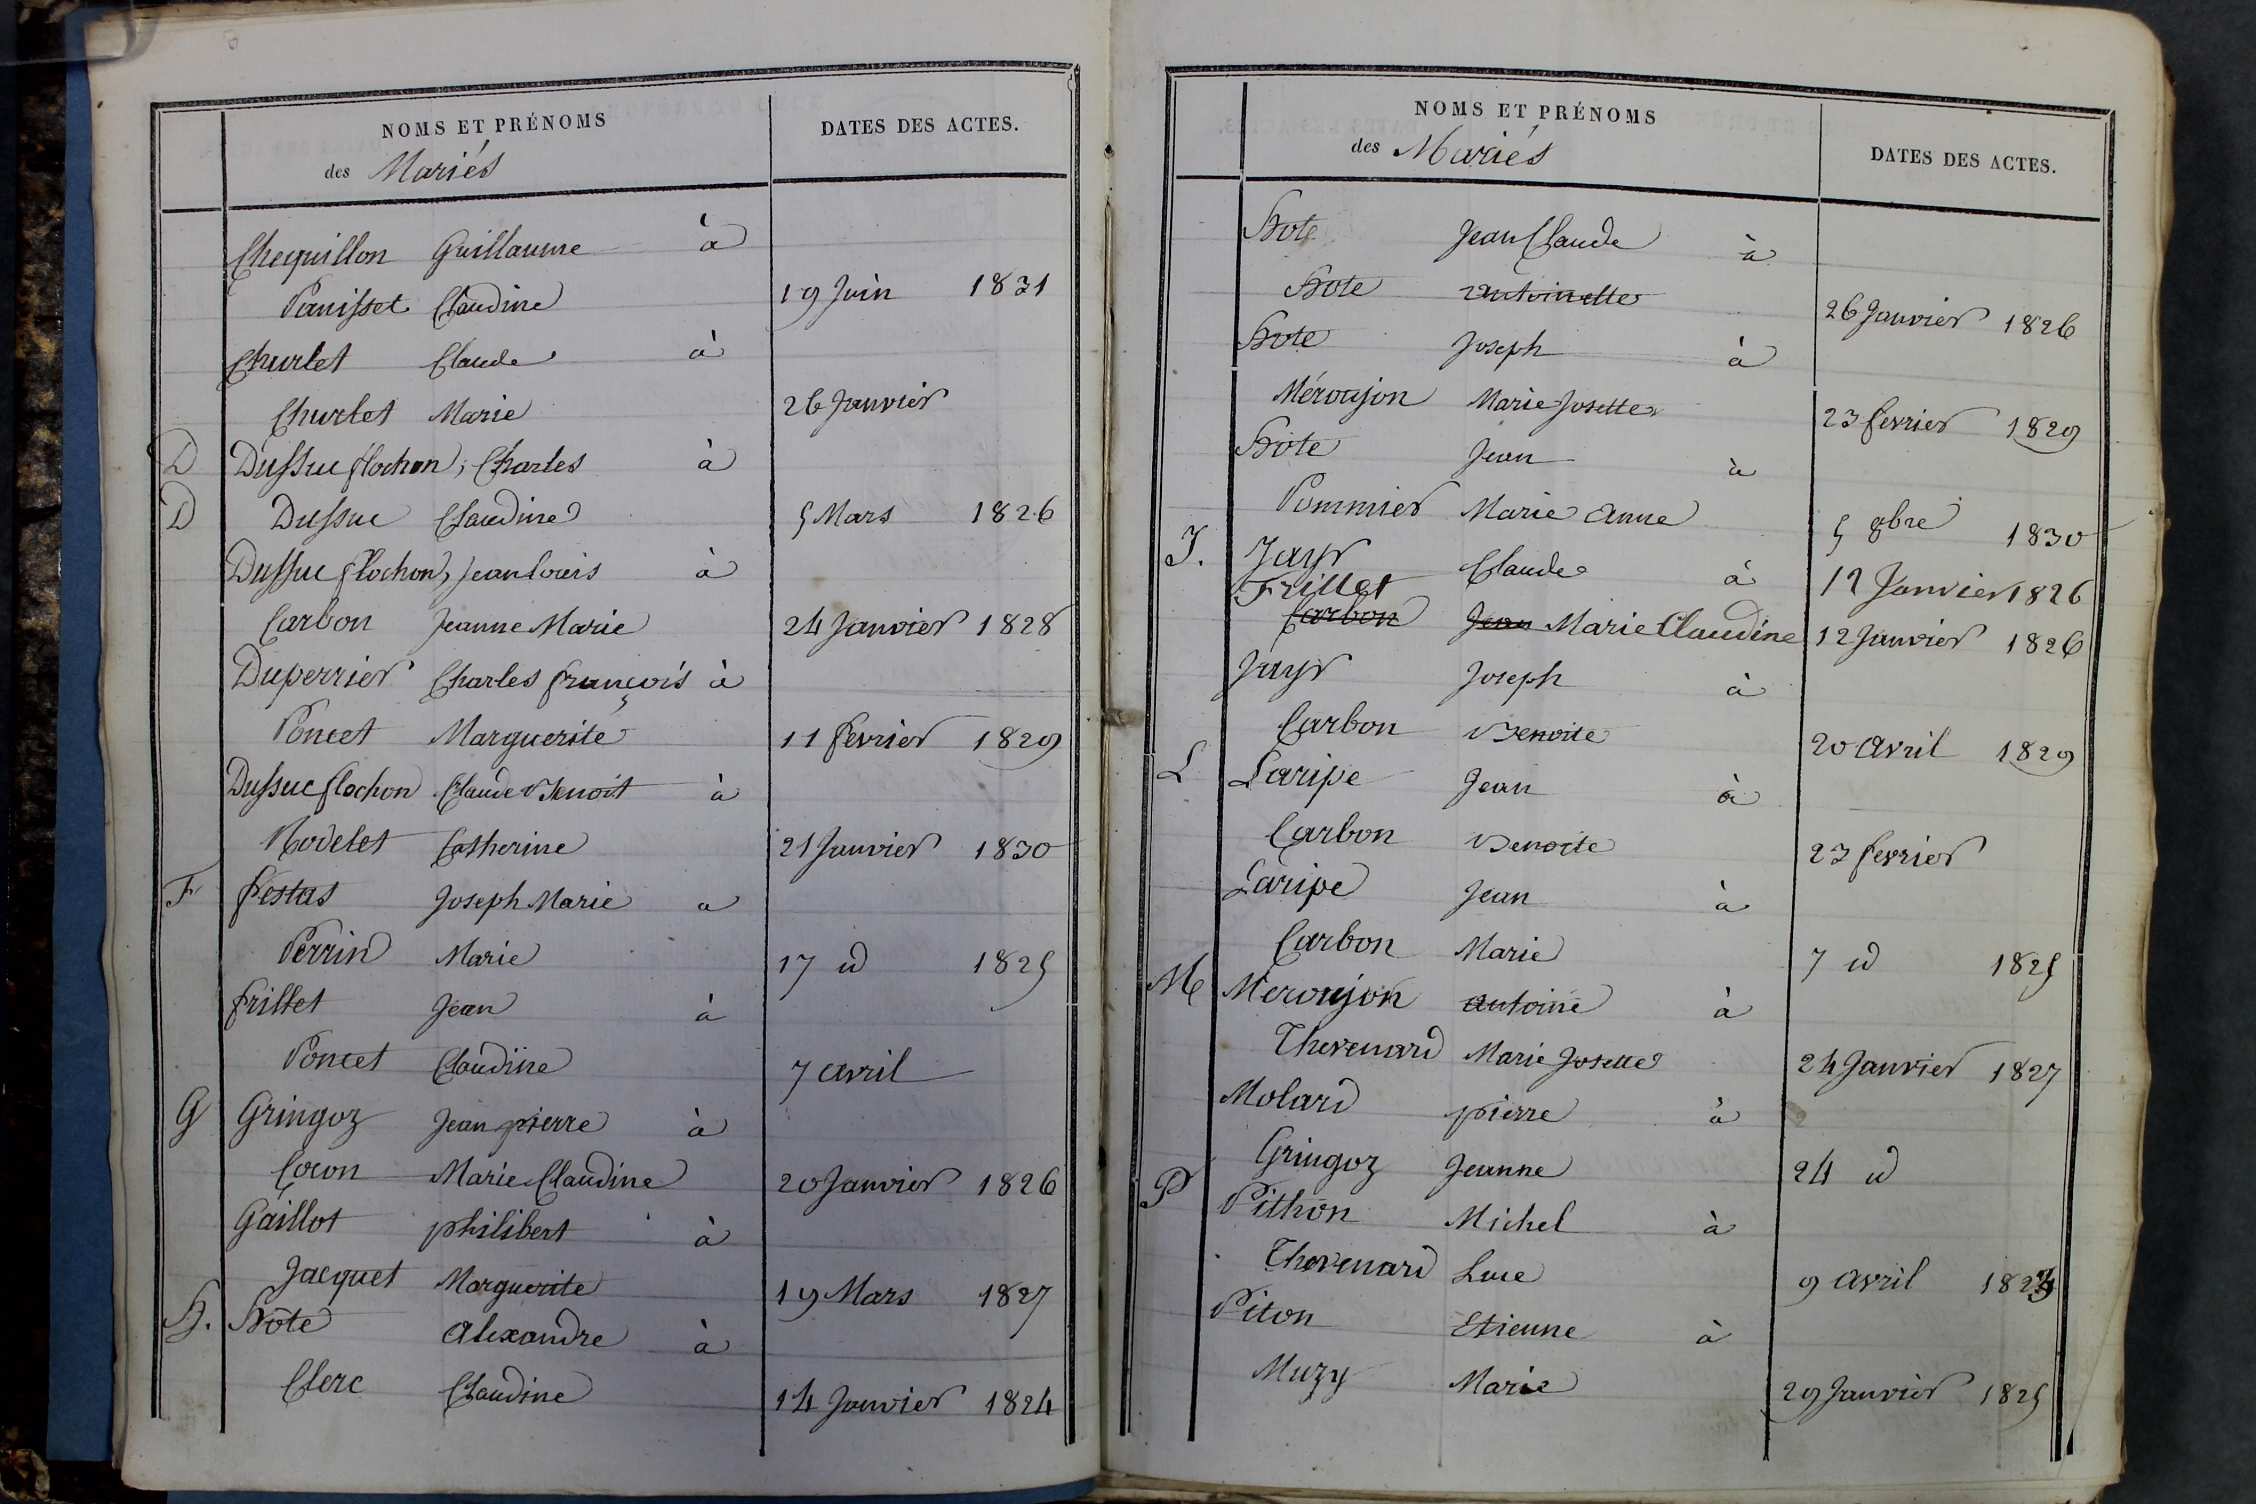 NOMS ET PRÉNOMS
des Mariés
DATES DES ACTES.
Chequillon Guillaume à
Panisset Claudine 19 Juin 1831
Churlet Claude à
Churlet Marie 26 Janvier
D Dussuc flochon, Charles à
D Dussuc Claudine 5 Mars 1826
Dussuc flochon, Jean louis à
Carbon Jeanne Marie 24 Janvier 1828
Duperrier Charles françois à
Poncet Marguerite 11 fevrier 1829
Dussuc flochon Claude Benoit à
Rodelet Catherine 21 Janvier 1830
F festas Joseph Marie a
Perrin Marie 17 id 1825
frillet Jean à
Poncet Claudine 7 avril
G Gringoz Jean pierre à
Cocon Marie Claudine 20 Janvier 1826
Gaillot philibert à
Jacquet Marguerite 19 Mars 1827
H. Hôte alexandre à
Clerc Claudine 14 Janvier 1824
NOMS ET PRÉNOMS
des Mariés
DATES DES ACTES.
Hote Jean Claude à
Hote antoinette 26 Janvier 1826
Hote Joseph à
Méroujon Marie Josette 23 fevrier 1829
Hote Jean à
Pommier Marie anne 5 9bre 1830
J. Jayr Claude à 12 Janvier 1826
Frillet
Carbon Jean Marie Claudine 12 Janvier 1826
Jayr Joseph à
Carbon Benoite 20 avril 1829
L Laripe Jean à
Carbon Benoite 23 fevrier
Laripe Jean à
Carbon Marie 7 id 1825
M Meroujon antoine à
Thevenard Marie Josette 24 Janvier 1827
Molard pierre à
Gringoz Jeanne 24 id
P Pithon Michel à
Thevenard Luce 9 avril
Piton Etienne à
Muzy Marie 29 Janvier 1825